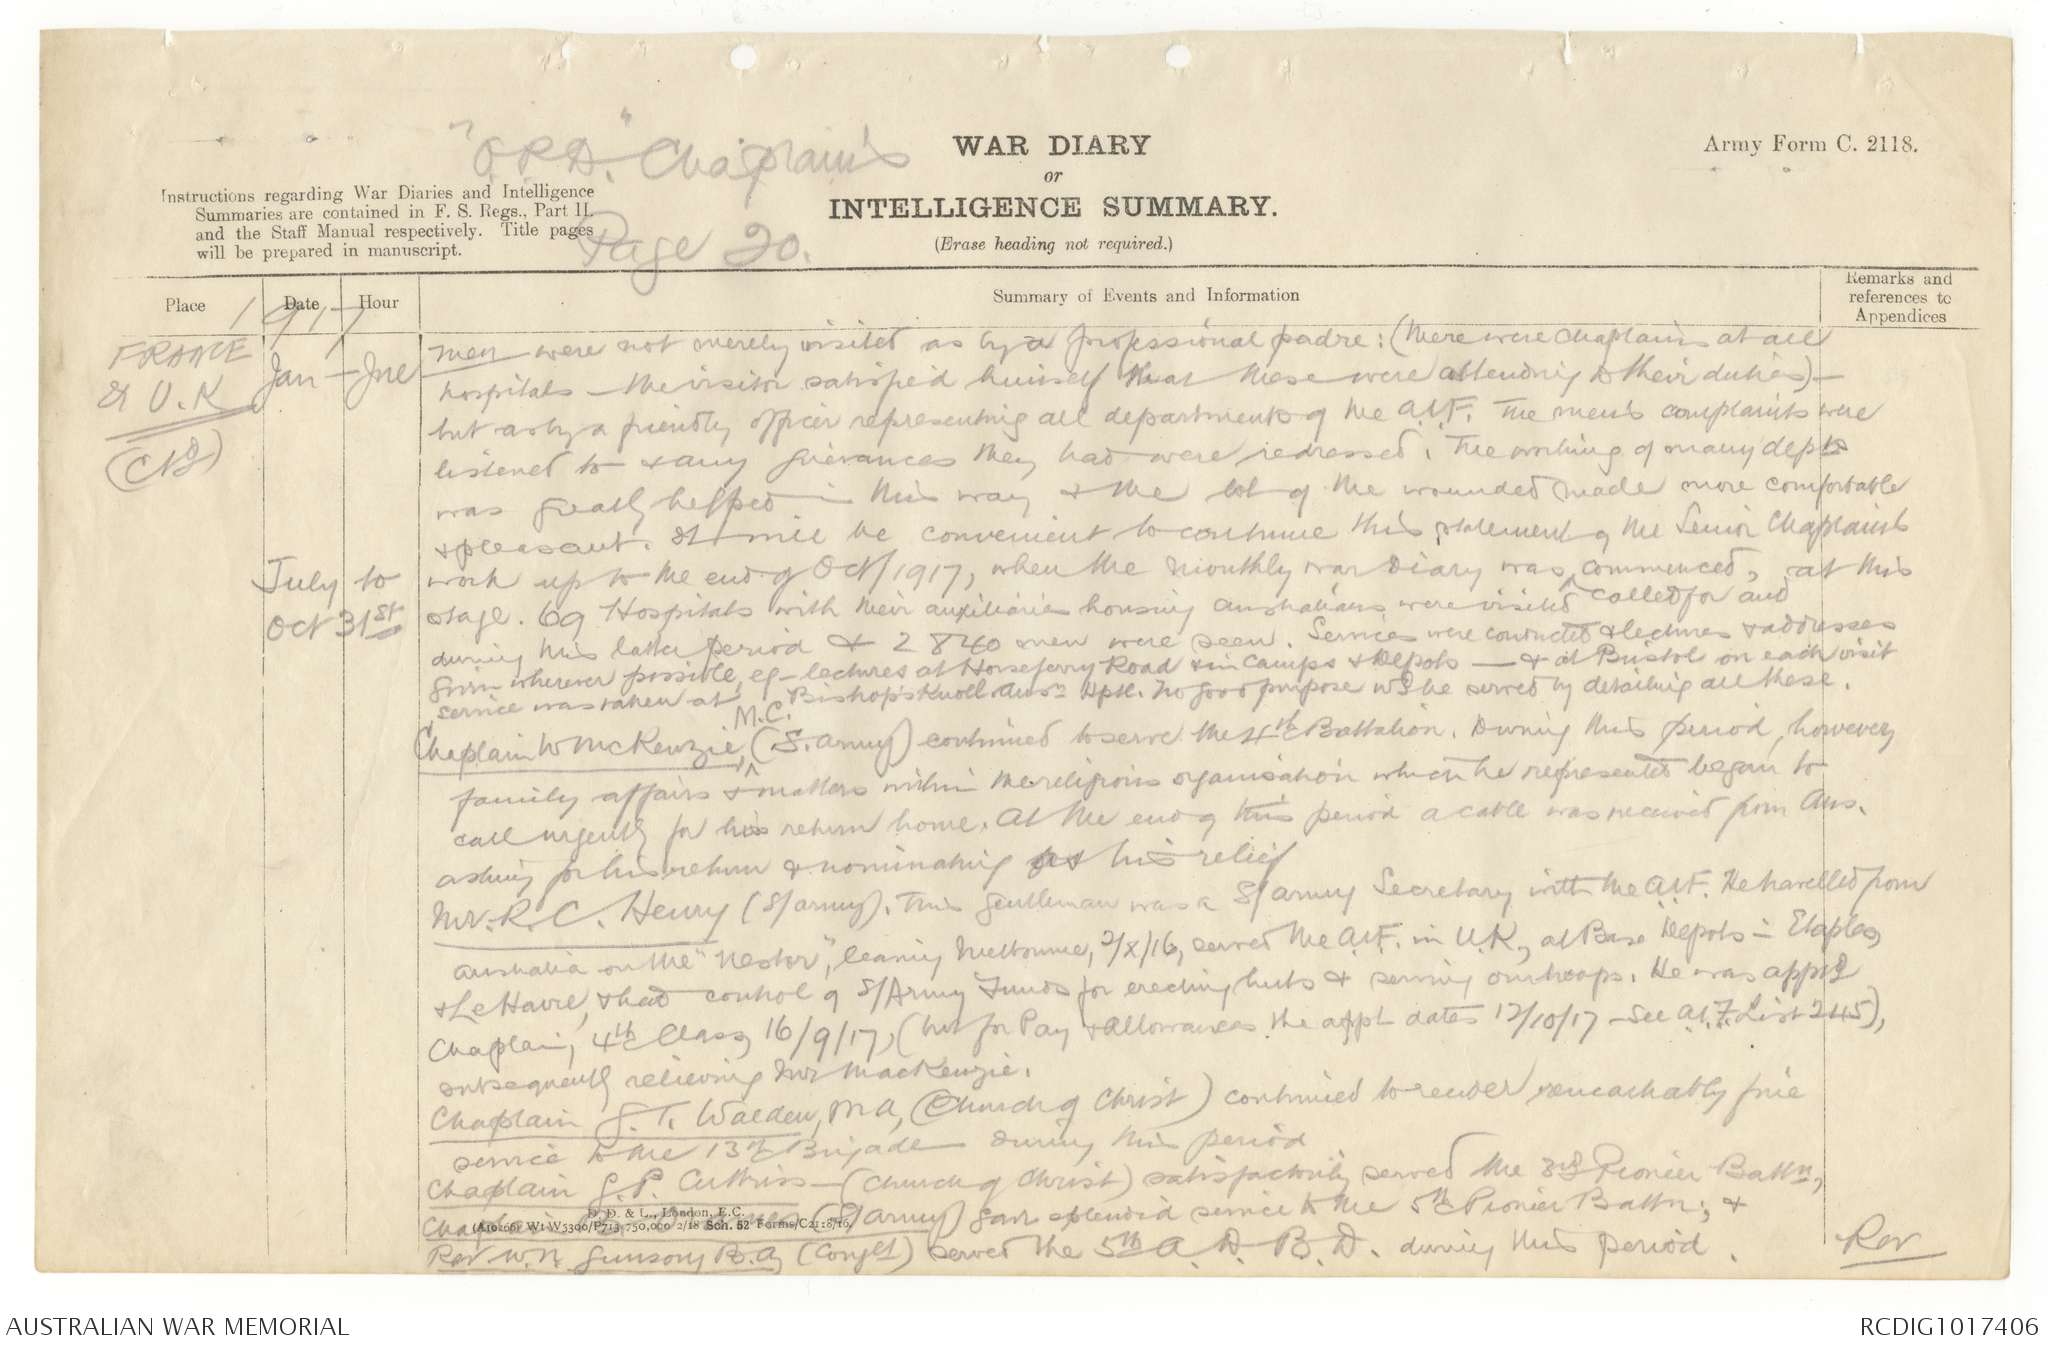 "O.P.D." Chaplain's
Page 20.
WAR DIARY
or
INTELLIGENCE SUMMARY.
(Erase heading not required.)
Army Form C. 2118.
Instructions regarding War Diaries and Intelligence
Summaries are contained in F. S. Regs., Part II.
and the Staff Manual respectively. Title pages
will be prepared in manuscript.
Place
Date
Hour
Summary of Events and Information
Remarks and
references to
Appendices
1917
FRANCE
& U.K
Jan - Jne
men were not merely visited as by a professional padre: (there were chaplains at all
hospitals - the visitor satisfied himself that these were attending to their duties) -
but as by a friendly officer representing all departments of the A.I.F. The men's complaints were
listened to & any grievances they had were redressed. The working of many depts
was greatly helped in this way & the lot of the wounded made more comfortable
& pleasant. It will be convenient to continue this statement of the Senior Chaplain's
July to
Oct 31st
work up to the end of Oct/1917, when the monthly war Diary was called for and commenced, at this
stage. 69 Hospitals with their auxiliaries housing Australians were visited
during this latter period & 2840 men were seen. Services were conducted & lectures & addresses
given wherever possible, eg - lectures at Horseferry Road & in Camps & Depots - & at Bristol on each visit
service was taken at Bishop's Knoll Ausn Hptl. No good purpose wld be served by detailing all these.
Chaplain W McKenzie, M.C. (S. Army) continued to serve the 4th Battalion. During this period, however
family affairs & matters within the religious organisation which he represented began to
call urgently for his return home. At the end of this period a cable was received from Aus.
asking for his return & nominating as his relief
Mr. R. C. Henry (S/army). This gentleman was a S/army Secretary with the A.I.F. He travelled from
Australia on the "Nestor", leaving Melbourne, 2/X/16, served the A.I.F. in U.K, at Base Depots in Etaples
& Le Havre, & had control of S/Army Funds for erecting huts & serving our troops. He was apptd
Chaplain, 4th Class, 16/9/17, (but for Pay & allowances the appt dates 12/10/17 - See A.I.F. List 245),
subsequently relieving Mr MacKenzie.
Chaplain G. T. Walden, M A, (Church of Christ) continued to render remarkably fine
service to the 13th Brigade during this period
Chaplain G. P. Cuttriss - (Church of Christ) satisfactorily served the 3rd Pioneer Battn,
Chaplain (S/army) gave splendid service to the 5th Pioneer Battn; &
Rev W. N. Gunson, B. A, (Congl) served the 5th A. D. B. D. during this period.
Rev
D. D. & L., London, E.C.
(A10266) Wt W5300/P713 750,000 2/18 Sch. 52 Forms/C2118/16.
AUSTRALIAN WAR MEMORIAL
RCDIG1017406